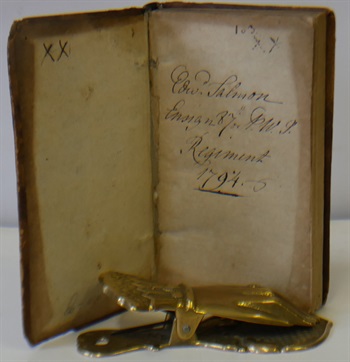 XX
103
Edwd. Salmon
Ensign 87th
Regiment
1794